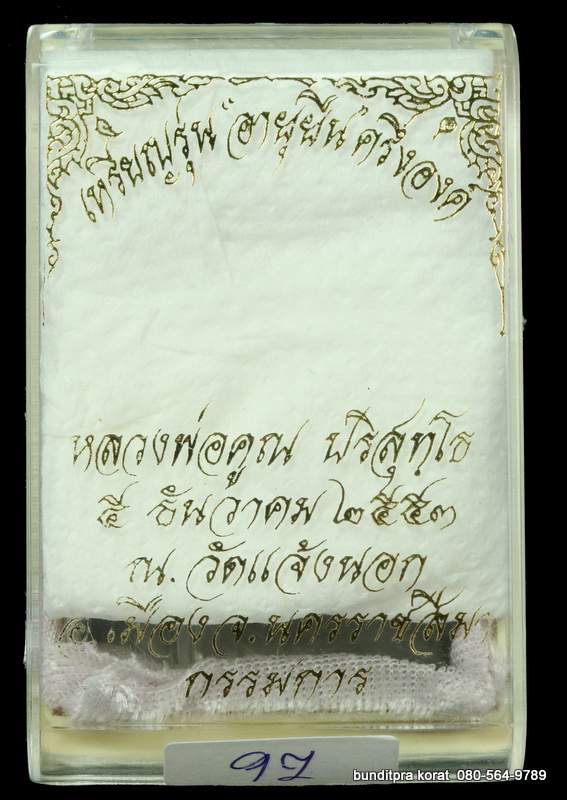 เหรียญรุ่น "อายุยืน" ครึ่งองค์
หลวงพ่อคูณ ปริสุทฺโธ
๕ ธันวาคม ๒๕๕๓
ณ. วัดแจ้งนอก
อ.เมือง จ.นครราชสีมา
กรรมการ
bunditpra korat 080-564-9789